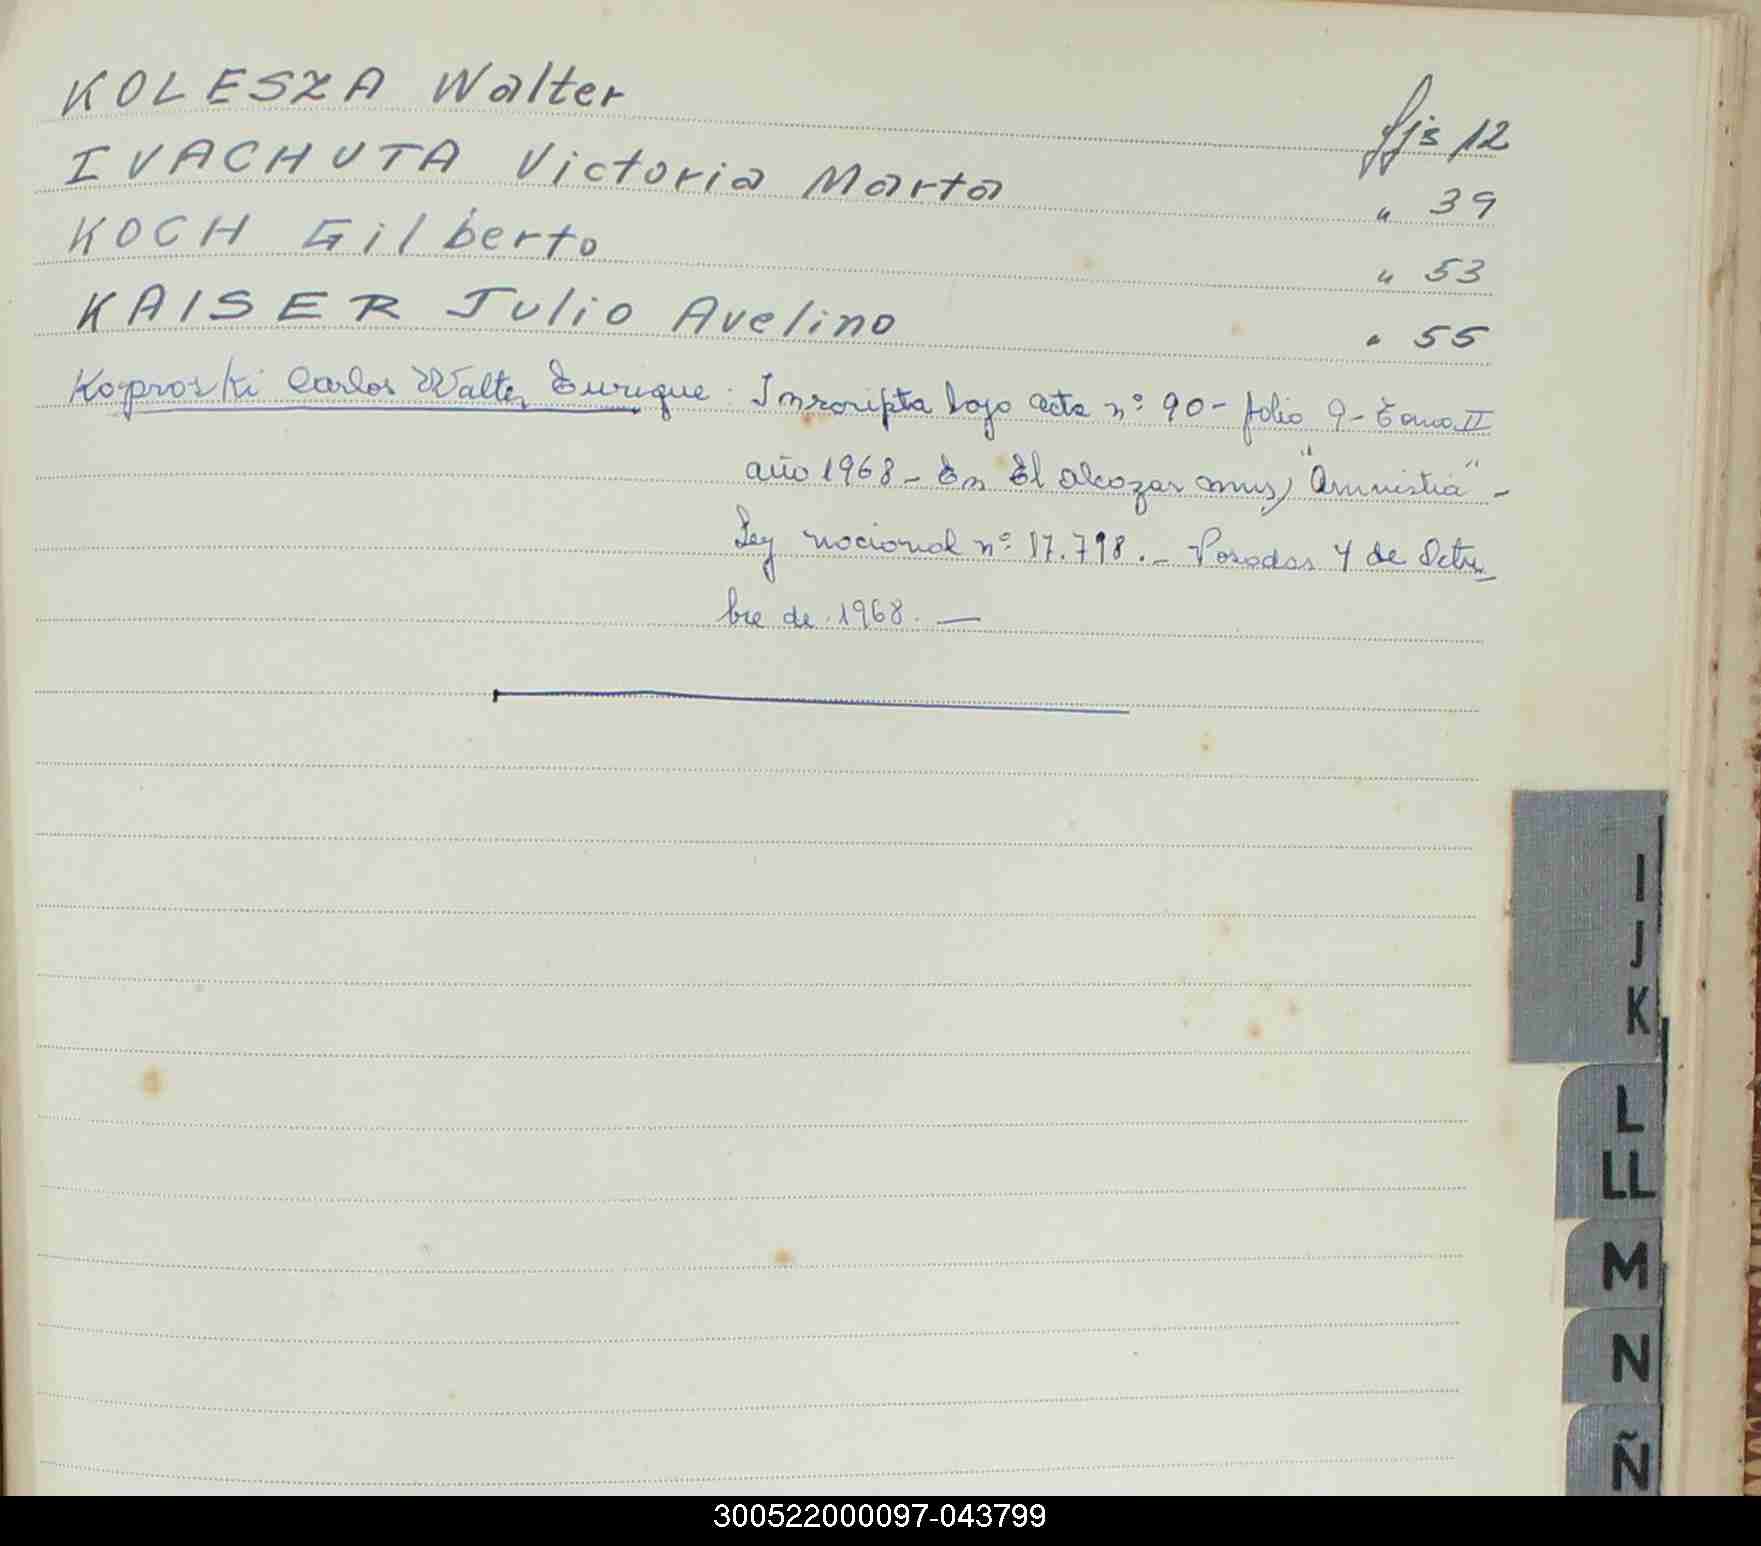 KOLESZA Walter fjs 12
IVACHUTA Victoria Marta " 39
KOCH Gilberto " 53
KAISER Julio Avelino " 55
Koproski Carlos Walter Enrique: Inscripta bajo acta nº 90- folio 9- Tomo II
año 1968- En El alcazar mns, "Amnistia" -
Ley nacional nº 17.798.- Posadas 4 de Octu_
bre de 1968. —
I
J
K
L
LL
M
N
Ñ
300522000097-043799